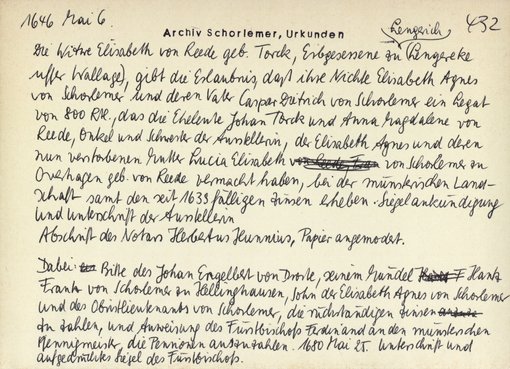 1646 Mai 6.
Archiv Schorlemer, Urkunden
Lengerich
432
Die Witwe Elisabeth von Reede geb. Torck, Erbgesessene zu Lengereke
uffer Wallage), gibt die Erlaubnis, daß ihre Nichte Elisabeth Agnes
von Schorlemer und deren Vater Caspar Dietrich von Schorlemer ein Legat
von 800 Rtl., das die Eheleute Johan Torck und Anna Magdalene von
Reede, Onkel und Schwester der Ausstellerin, der Elisabeth Agnes und deren
nun verstorbenen Mutter Lucia Elisabeth von Schorlemer zu
Overhagen geb. von Reede vermacht haben, bei der münsterischen Land-
schaft samt den seit 1633 fälligen Zinsen erheben. Siegelankündigung
und Unterschrift der Ausstellerin
Abschrift des Notars Herbertus Hunnius, Papier angemodert.
Dabei Bitte des Johan Engelbert von Droste, seinem Mündel Frantz
von Schorlemer zu Hellinghausen, Sohn der Elisabeth Agnes von Schorlemer
und des Obristlieutenants von Schorlemer, die rückständigen Zinsen
zu zahlen, und Anweisung des Fürstbischofs Ferdinand an den münsterschen
Pfennigmeister, die Pensionen auszuzahlen. 1680 Mai 25. Unterschrift und
aufgedrücktes Siegel des Fürstbischofs.